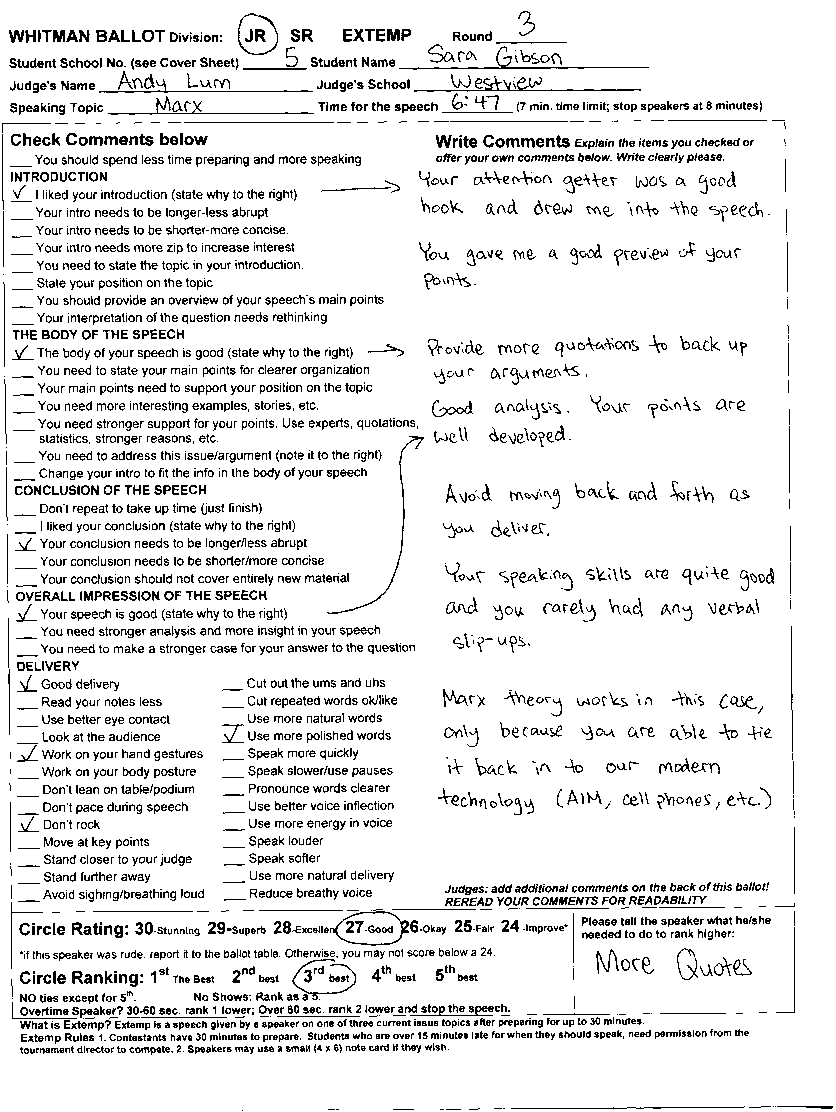 WHITMAN BALLOT Division: JR SR EXTEMP Round 3
Student School No. (see Cover Sheet) 5 Student Name Sara Gibson
Judge's Name Andy Lum Judge's School Westview
Speaking Topic Marx Time for the speech 6:47 (7 min. time limit; stop speakers at 8 minutes)
Check Comments below
___ You should spend less time preparing and more speaking
INTRODUCTION
✓ I liked your introduction (state why to the right)
___ Your intro needs to be longer-less abrupt
___ Your intro needs to be shorter-more concise.
___ Your intro needs more zip to increase interest
___ You need to state the topic in your introduction.
___ State your position on the topic
___ You should provide an overview of your speech's main points
___ Your interpretation of the question needs rethinking
THE BODY OF THE SPEECH
✓ The body of your speech is good (state why to the right)
___ You need to state your main points for clearer organization
___ Your main points need to support your position on the topic
___ You need more interesting examples, stories, etc.
___ You need stronger support for your points. Use experts, quotations,
statistics, stronger reasons, etc.
___ You need to address this issue/argument (note it to the right)
___ Change your intro to fit the info in the body of your speech
CONCLUSION OF THE SPEECH
___ Don't repeat to take up time (just finish)
___ I liked your conclusion (state why to the right)
✓ Your conclusion needs to be longer/less abrupt
___ Your conclusion needs to be shorter/more concise
___ Your conclusion should not cover entirely new material
OVERALL IMPRESSION OF THE SPEECH
✓ Your speech is good (state why to the right)
___ You need stronger analysis and more insight in your speech
___ You need to make a stronger case for your answer to the question
DELIVERY
✓ Good delivery
___ Read your notes less
___ Use better eye contact
___ Look at the audience
✓ Work on your hand gestures
___ Work on your body posture
___ Don't lean on table/podium
___ Don't pace during speech
✓ Don't rock
___ Move at key points
___ Stand closer to your judge
___ Stand further away
___ Avoid sighing/breathing loud
___ Cut out the ums and uhs
___ Cut repeated words ok/like
___ Use more natural words
✓ Use more polished words
___ Speak more quickly
___ Speak slower/use pauses
___ Pronounce words clearer
___ Use better voice inflection
___ Use more energy in voice
___ Speak louder
___ Speak softer
___ Use more natural delivery
___ Reduce breathy voice
Write Comments Explain the items you checked or
offer your own comments below. Write clearly please.
Your attention getter was a good
hook and drew me into the speech.
You gave me a good preview of your
points.
Provide more quotations to back up
your arguments.
Good analysis. Your points are
well developed.
Avoid moving back and forth as
you deliver.
Your speaking skills are quite good
and you rarely had any verbal
slip-ups.
Marx theory works in this case,
only because you are able to tie
it back in to our modern
technology (AIM, cell phones, etc.)
Judges: add additional comments on the back of this ballot!
REREAD YOUR COMMENTS FOR READABILITY
Circle Rating: 30-Stunning 29-Superb 28-Excellent 27-Good 26-Okay 25-Fair 24-Improve*
*if this speaker was rude, report it to the ballot table. Otherwise, you may not score below a 24.
Circle Ranking: 1st The Best 2nd best 3rd best 4th best 5th best
NO ties except for 5th. No Shows: Rank as a 5.
Overtime Speaker? 30-60 sec. rank 1 lower; Over 60 sec. rank 2 lower and stop the speech.
Please tell the speaker what he/she
needed to do to rank higher:
More Quotes
What is Extemp? Extemp is a speech given by a speaker on one of three current issue topics after preparing for up to 30 minutes.
Extemp Rules 1. Contestants have 30 minutes to prepare. Students who are over 15 minutes late for when they should speak, need permission from the
tournament director to compete. 2. Speakers may use a small (4 x 6) note card if they wish.